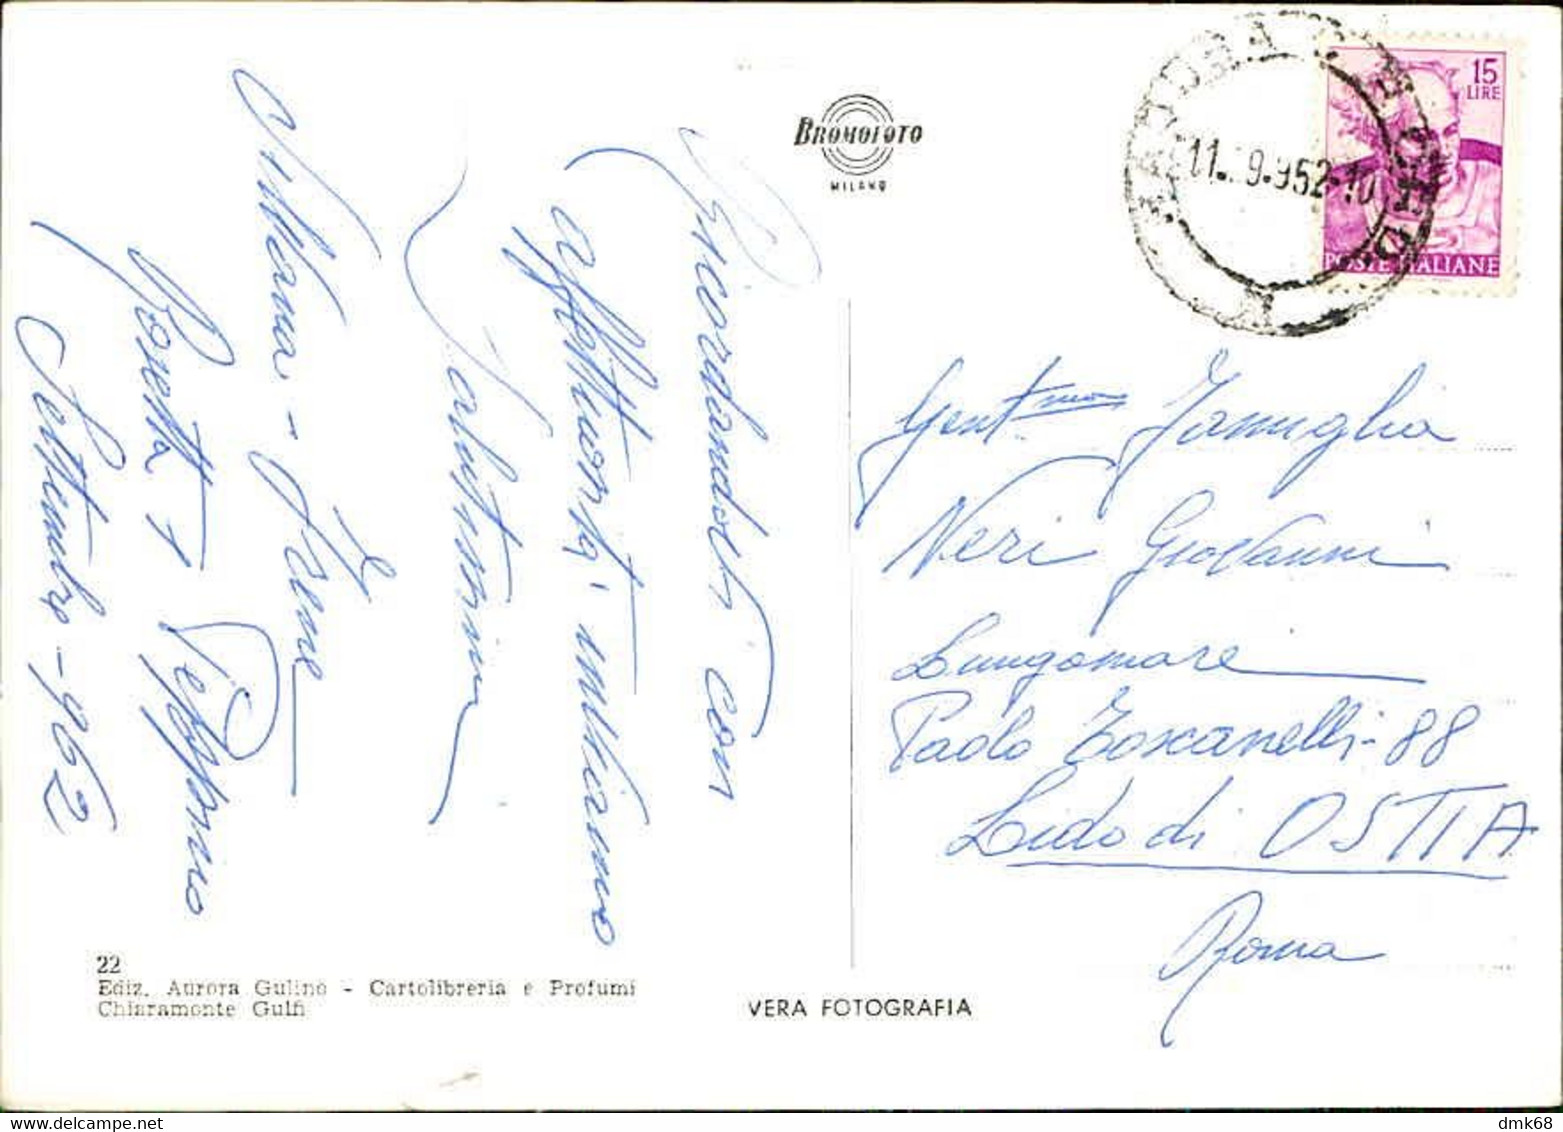 BROMOFOTO
MILANO
15
LIRE
POSTE ITALIANE
11. 9.952-10
Ricordandoti con
affettuosità inviamo
Saluti
Settembre - 962
Rosetta + Peppino
Gent.mo Famiglia
Neri Giovanni
Lungomare
Paolo Toscanelli - 88
Lido di OSTIA
Roma
22
Ediz. Aurora Gulino - Cartolibreria e Profumi
Chiaramonte Gulfi
VERA FOTOGRAFIA
dmk68